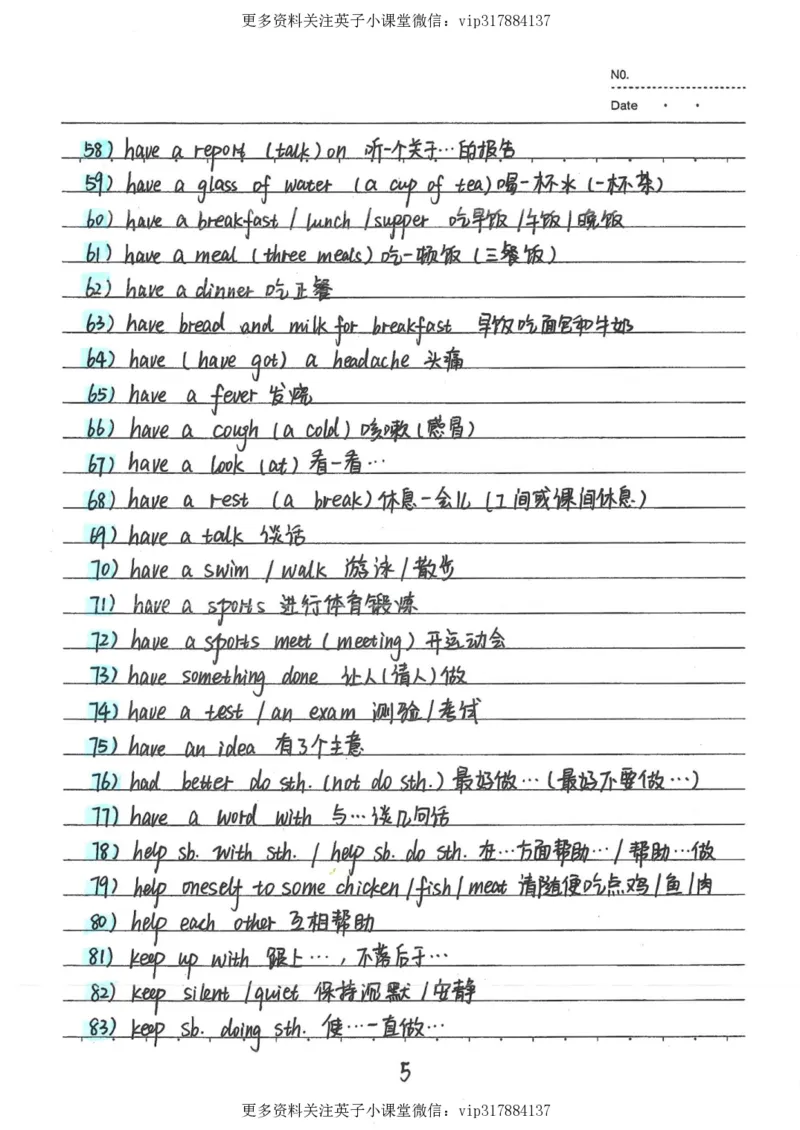 更多资料关注英子小课堂微信：vip317884137
NO.
Date · ·
58) have a report (talk) on 听一个关于…的报告
59) have a glass of water (a cup of tea) 喝一杯水 (一杯茶)
60) have a breakfast / lunch / supper 吃早饭 / 午饭 / 晚饭
61) have a meal (three meals) 吃一顿饭 (三餐饭)
62) have a dinner 吃正餐
63) have bread and milk for breakfast 早饭吃面包和牛奶
64) have (have got) a headache 头痛
65) have a fever 发烧
66) have a cough (a cold) 咳嗽 (感冒)
67) have a look (at) 看一看…
68) have a rest (a break) 休息一会儿 (工间或课间休息)
69) have a talk 谈话
70) have a swim / walk 游泳 / 散步
71) have a sports 进行体育锻炼
72) have a sports meet (meeting) 开运动会
73) have something done 让人(请人)做
74) have a test / an exam 测验 / 考试
75) have an idea 有了个主意
76) had better do sth. (not do sth.) 最好做… (最好不要做…)
77) have a word with 与…谈几句话
78) help sb. with sth. / help sb. do sth. 在…方面帮助… / 帮助…做
79) help oneself to some chicken / fish / meat 请随便吃点鸡 / 鱼 / 肉
80) help each other 互相帮助
81) keep up with 跟上…，不落后于…
82) keep silent / quiet 保持沉默 / 安静
83) keep sb. doing sth. 使…一直做…
5
更多资料关注英子小课堂微信：vip317884137